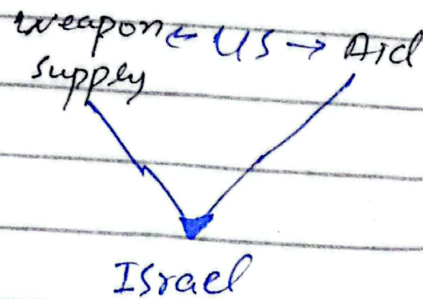 Weapon ← US → Aid
Supply
Israel